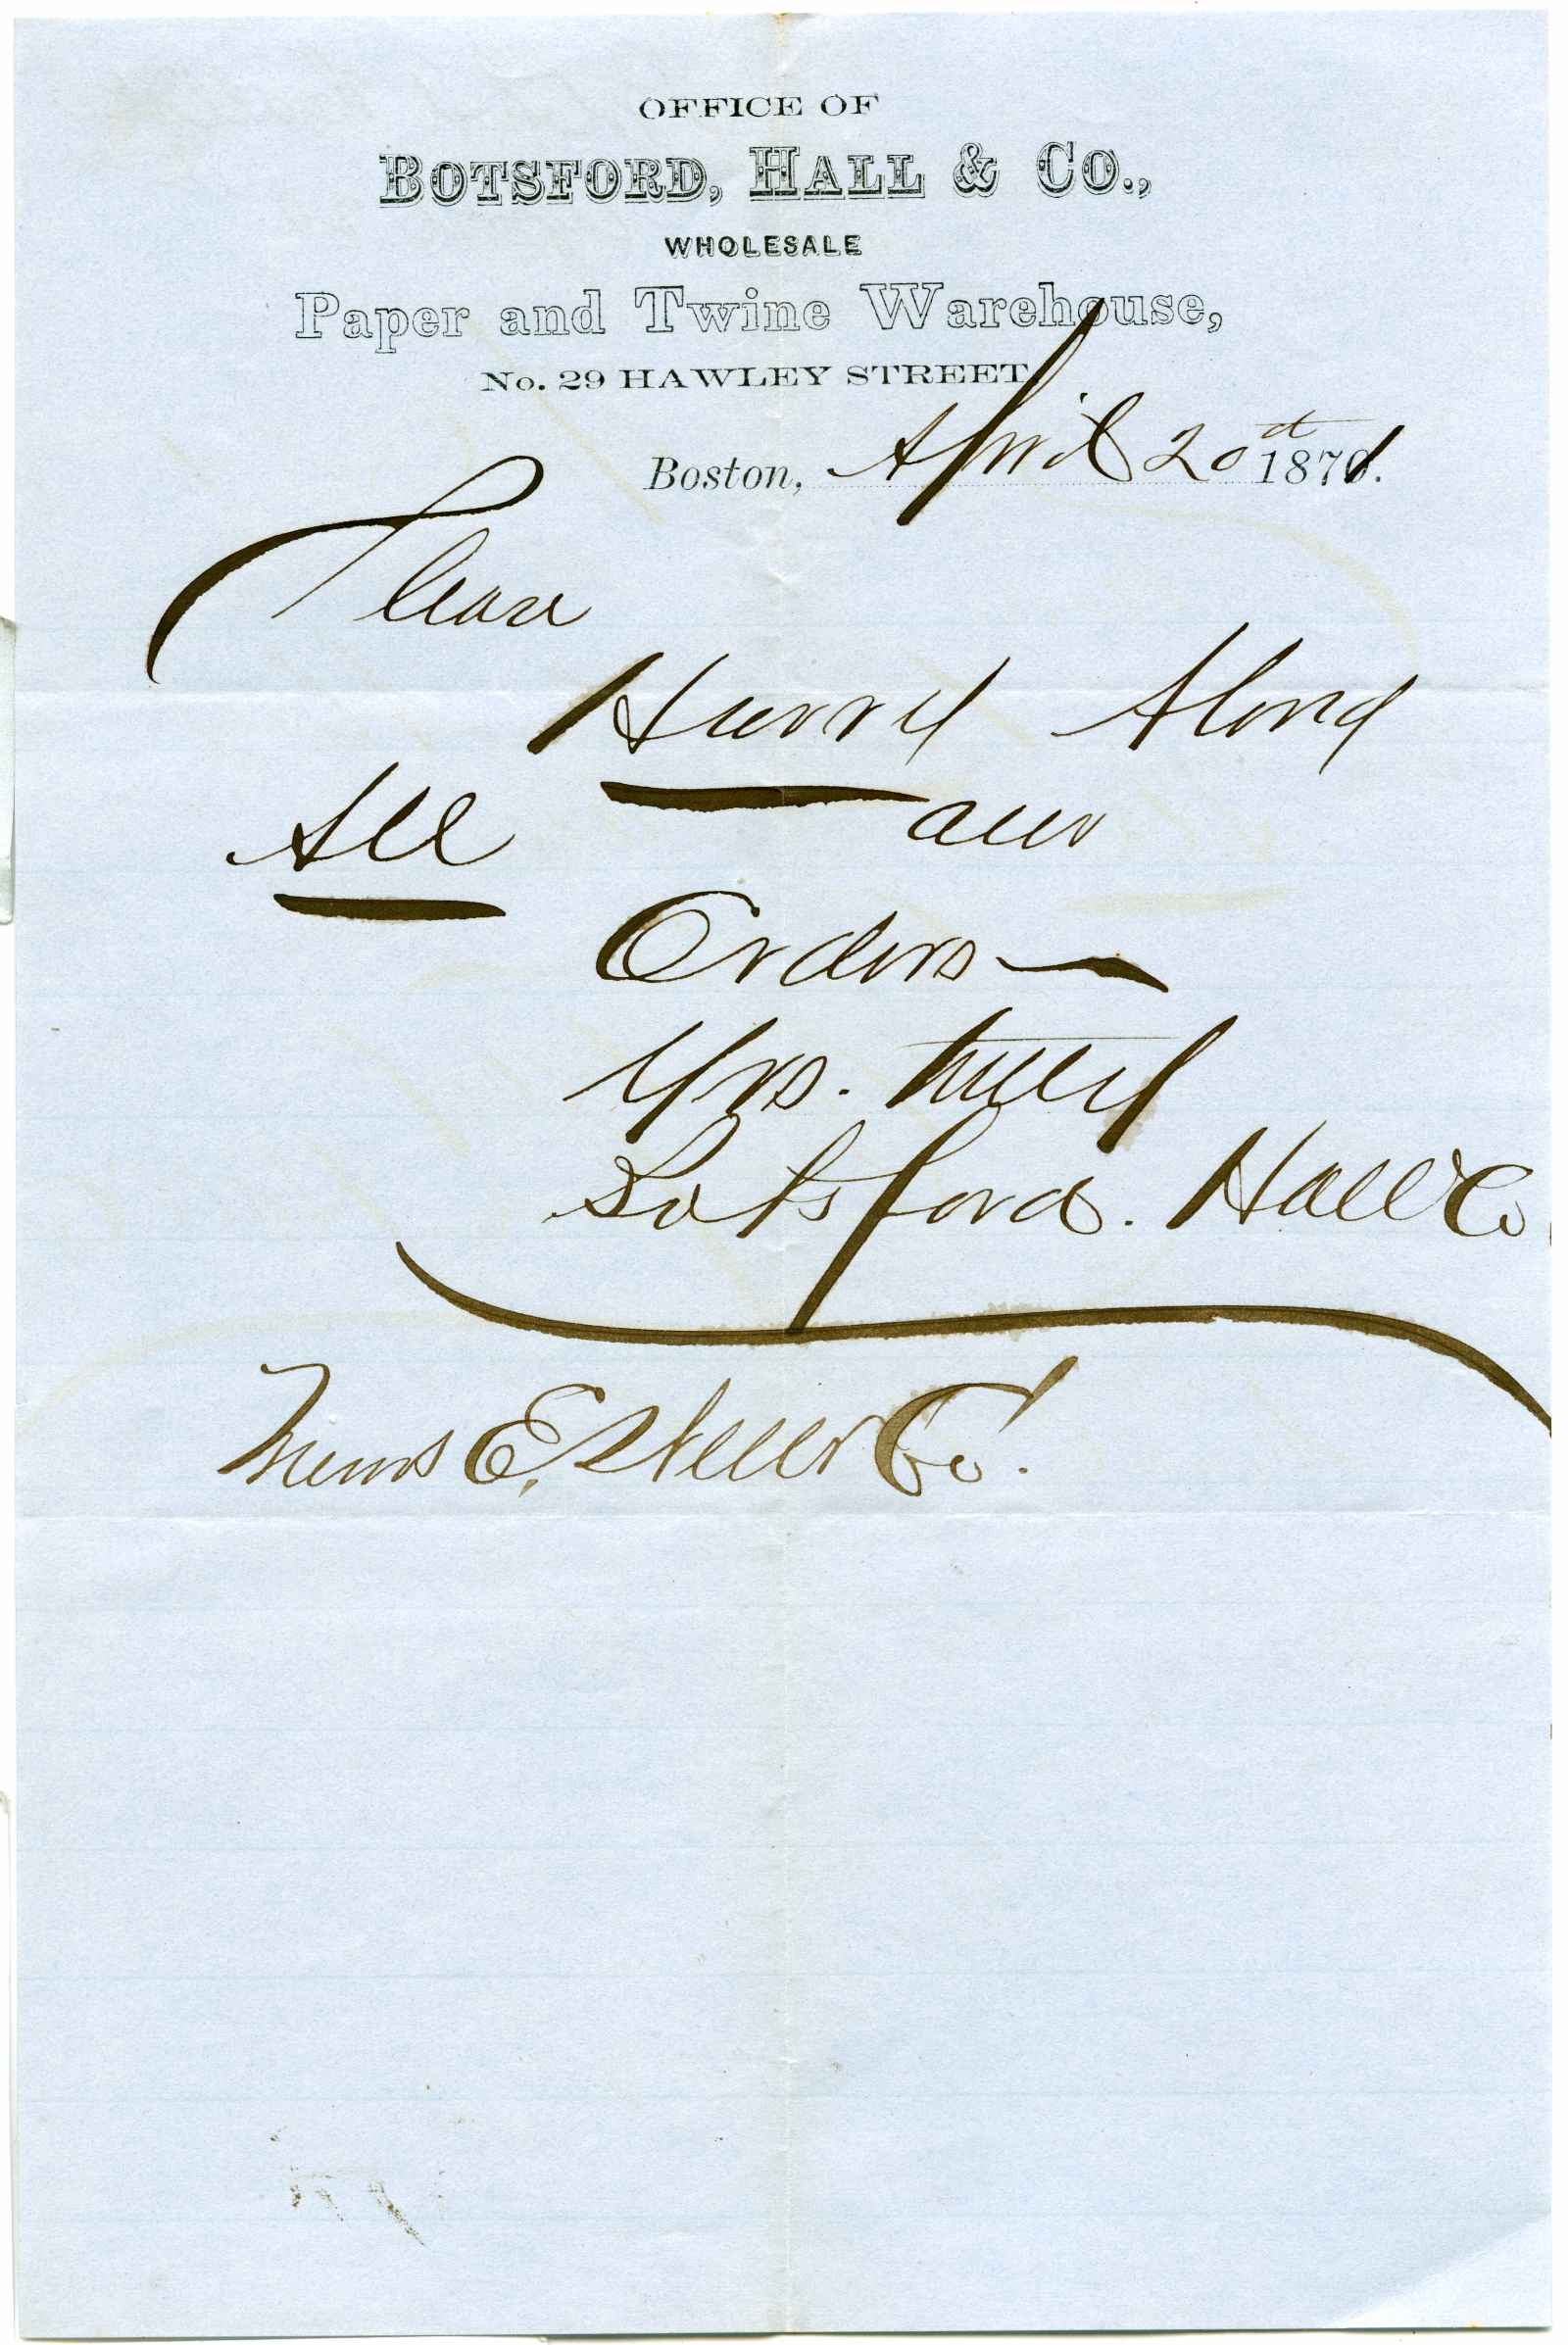 OFFICE OF
BOTSFORD, HALL & CO.,
WHOLESALE
Paper and Twine Warehouse,
No. 29 HAWLEY STREET
Boston, April 20th 1871.
Please
Hurry Along
All our
Orders —
Yrs. truly
Botsford. Hall & Co
Messrs E.
Co.